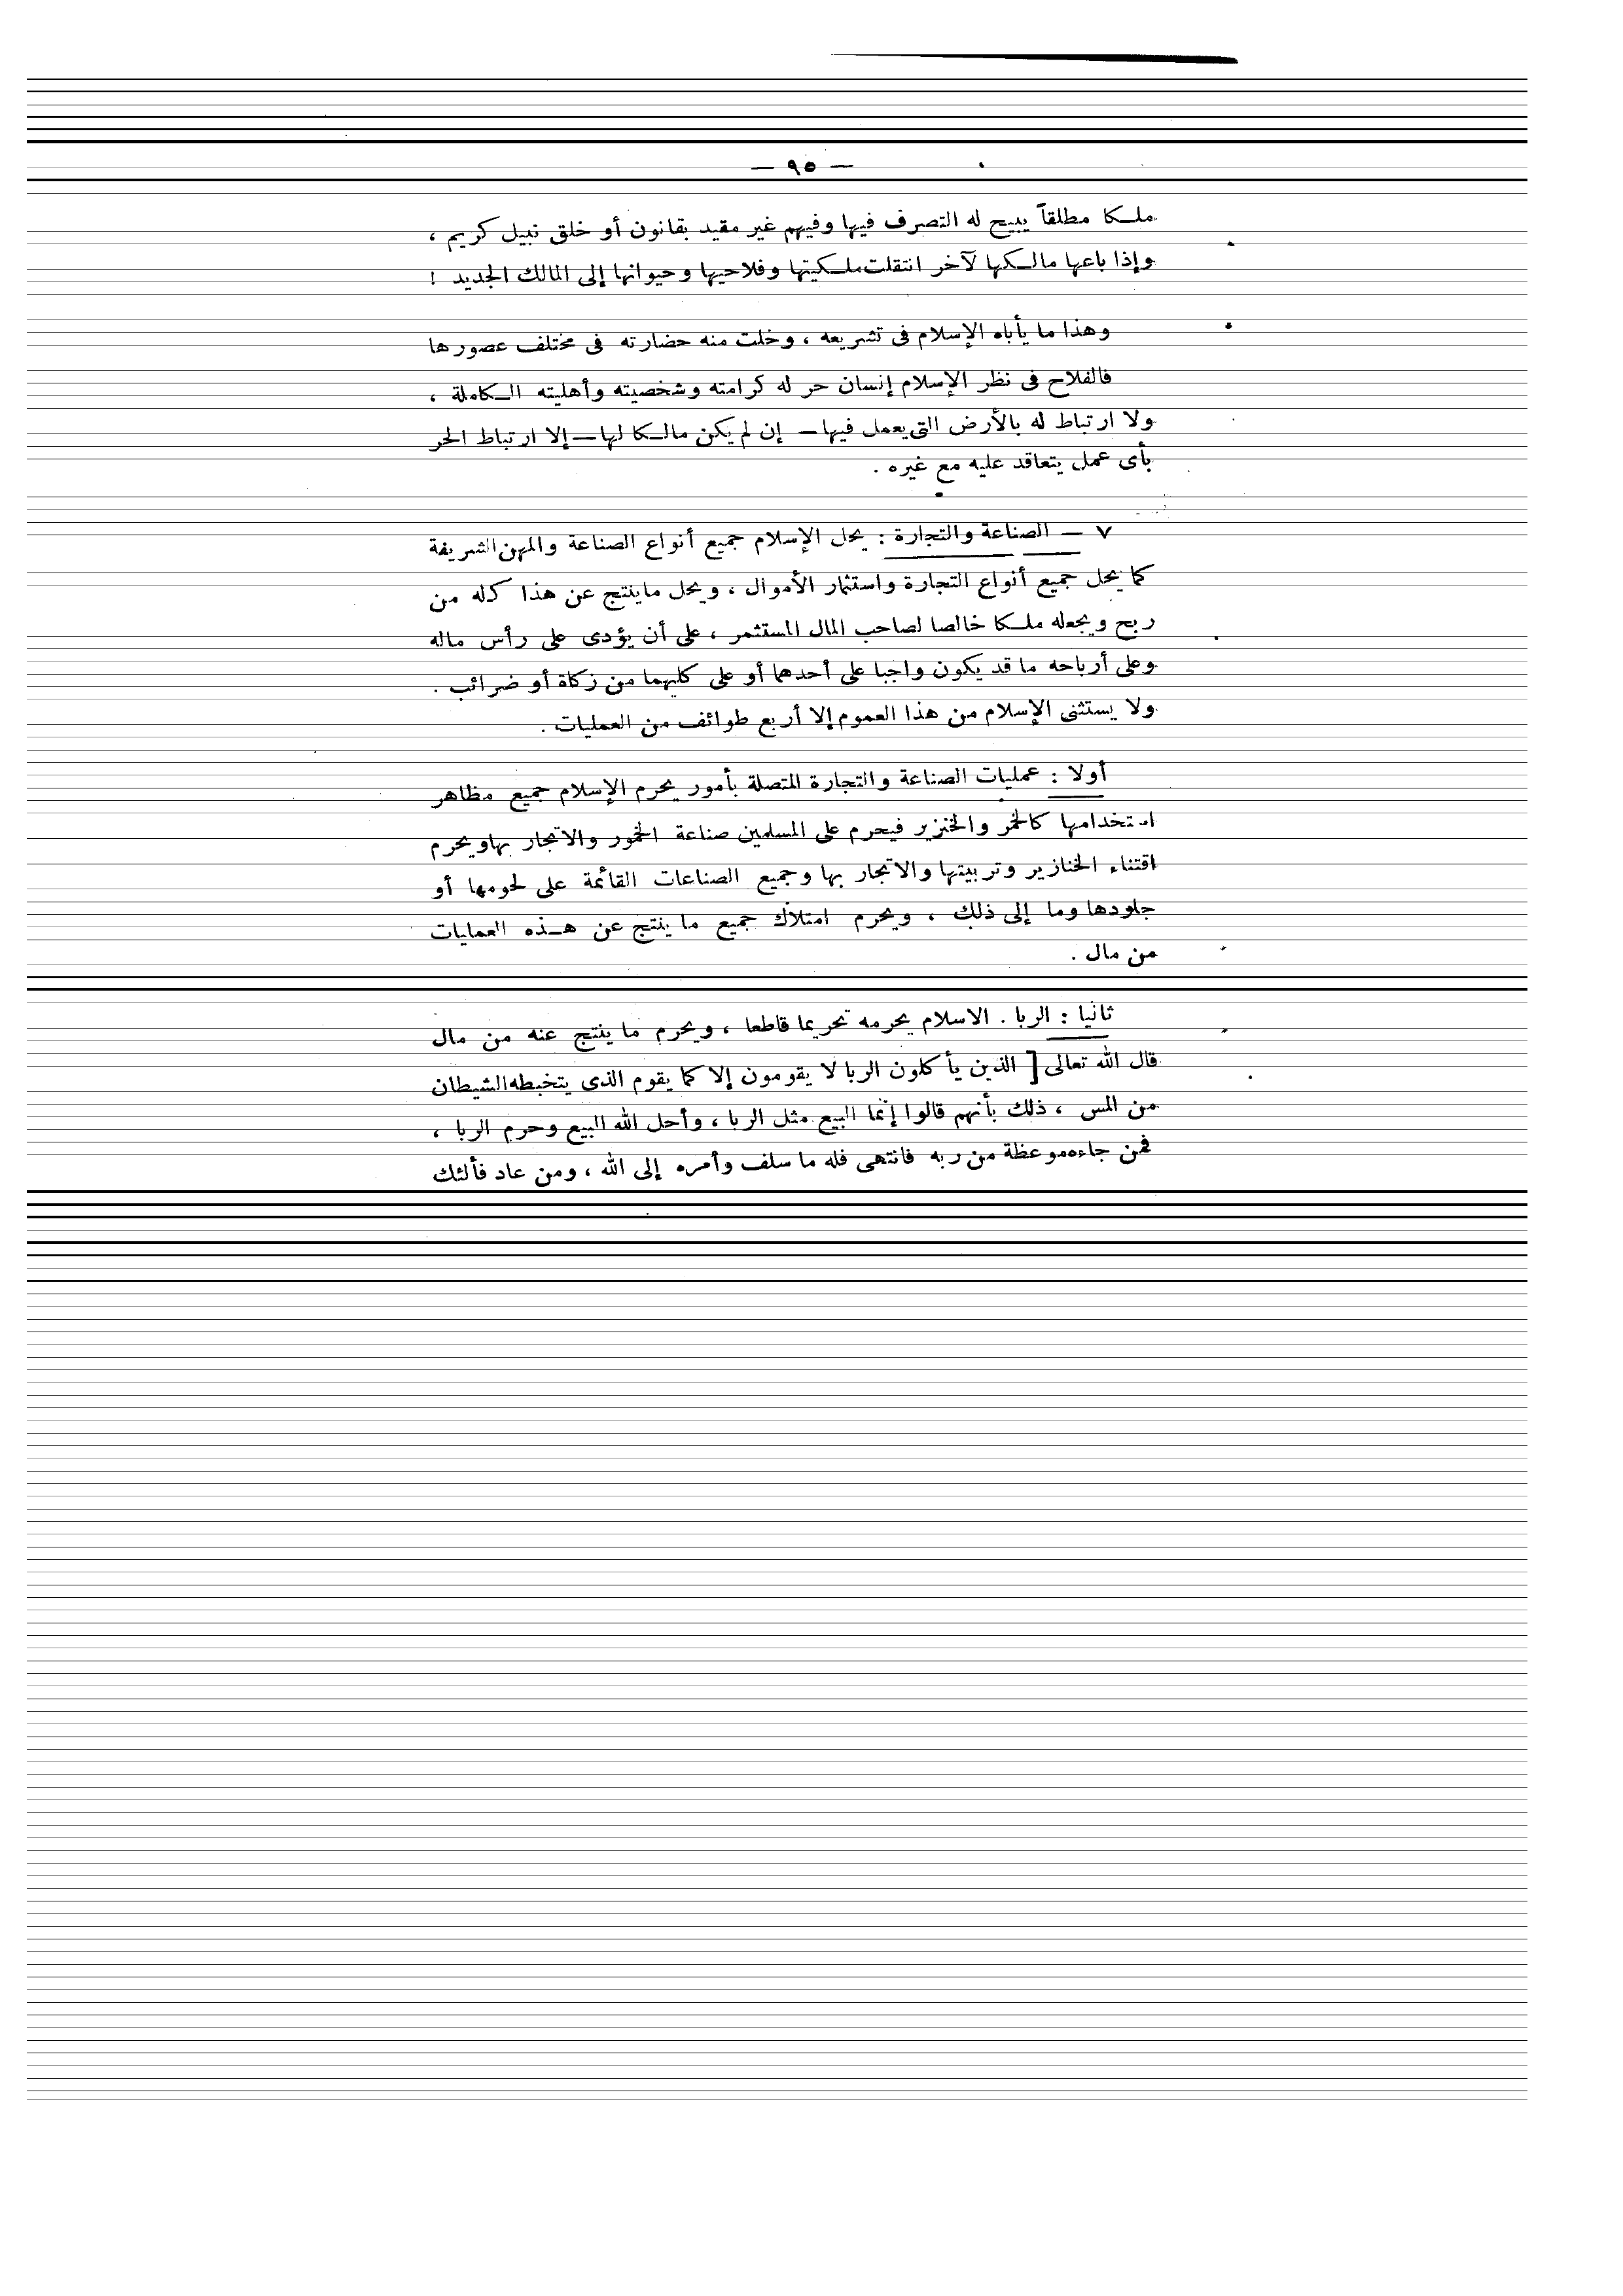 — ٩٥ —
ملكا مطلقاً يبيح له التصرف فيها وفيهم غير مقيد بقانون أو خلق نبيل كريم ،
وإذا باعها مالكها لآخر انتقلت ملكيتها وفلاحيها وحيوانها إلى المالك الجديد !
وهذا ما يأباه الإسلام فى تشريعه ، وخلت منه حضارته فى مختلف عصورها
فالفلاح فى نظر الإسلام إنسان حر له كرامته وشخصيته وأهليته الكاملة ،
ولا ارتباط له بالأرض التى يعمل فيها — إن لم يكن مالكا لها — إلا ارتباط الحر
بأى عمل يتعاقد عليه مع غيره .
٧ — الصناعة والتجارة : يحل الإسلام جميع أنواع الصناعة والمهن الشريفة
كما يحل جميع أنواع التجارة واستثمار الأموال ، ويحل ماينتج عن هذا كله من
ربح ويجعله ملكا خالصا لصاحب المال المستثمر ، على أن يؤدى على رأس ماله
وعلى أرباحه ما قد يكون واجبا على أحدهما أو على كليهما من زكاة أو ضرائب .
ولا يستثنى الإسلام من هذا العموم إلا أربع طوائف من العمليات .
أولا : عمليات الصناعة والتجارة المتصلة بأمور يحرم الإسلام جميع مظاهر
استخدامها كالخمر والخنزير فيحرم على المسلمين صناعة الخمور والاتجار بها ويحرم
اقتناء الخنازير وتربيتها والاتجار بها وجميع الصناعات القائمة على لحومها أو
جلودها وما إلى ذلك ، ويحرم امتلاك جميع ما ينتج عن هذه العمليات
من مال .
ثانيا : الربا . الاسلام يحرمه تحريما قاطعا ، ويحرم ما ينتج عنه من مال
قال الله تعالى [ الذين يأكلون الربا لا يقومون إلا كما يقوم الذى يتخبطه الشيطان
من المس ، ذلك بأنهم قالوا إنما البيع مثل الربا ، وأحل الله البيع وحرم الربا ،
فمن جاءه موعظة من ربه فانتهى فله ما سلف وأمره إلى الله ، ومن عاد فألئك